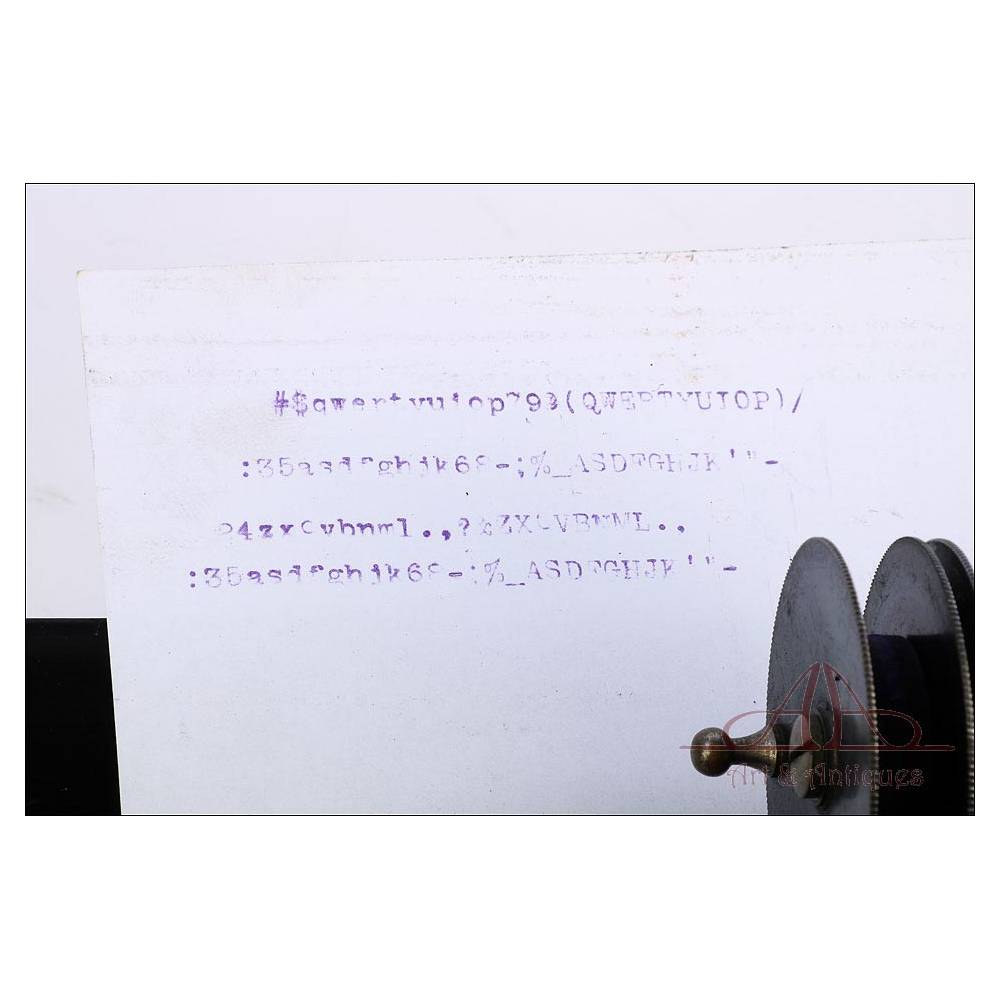 #$qwertyuiop793(QWERTYUIOP)/
:35asdfghjk68-;%_ASDFGHJK'"-
24zxcvbnml.,?&ZXCVBNML.,
:35asdfghjk68-;%_ASDFGHJK'"-
Art & Antiques